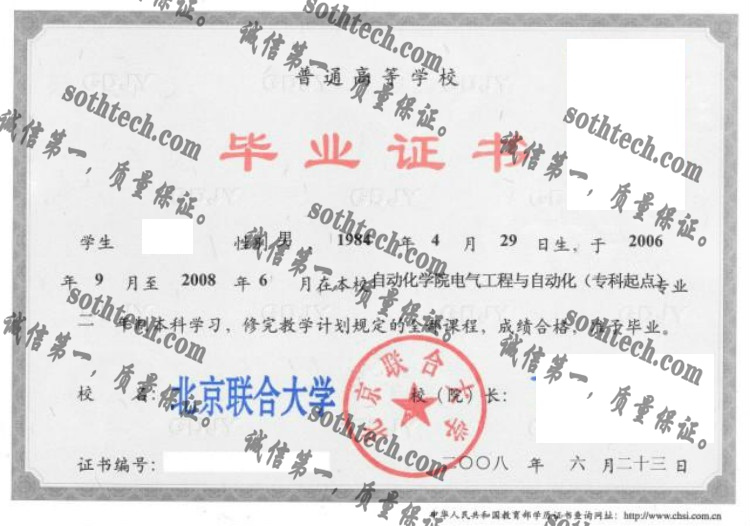 普通高等学校
毕业证书
学生 性别 男 ，1984 年 4 月 29 日生，于 2006
年 9 月至 2008 年 6 月在本校 自动化学院电气工程与自动化（专科起点） 专业
二 年制本科学习，修完教学计划规定的全部课程，成绩合格，准予毕业。
校 名：北京联合大学 校（院）长：
北京联合大学
证书编号： 二〇〇八 年 六 月二十三日
中华人民共和国教育部学历证书查询网址：http://www.chsi.com.cn
sothtech.com
诚信第一，质量保证。
sothtech.com
诚信第一，质量保证。
sothtech.com
诚信第一，质量保证。
sothtech.com
诚信第一，质量保证。
诚信第一，质量保证。
诚信第一，质量保证。
sothtech.com
诚信第一，质量保证。